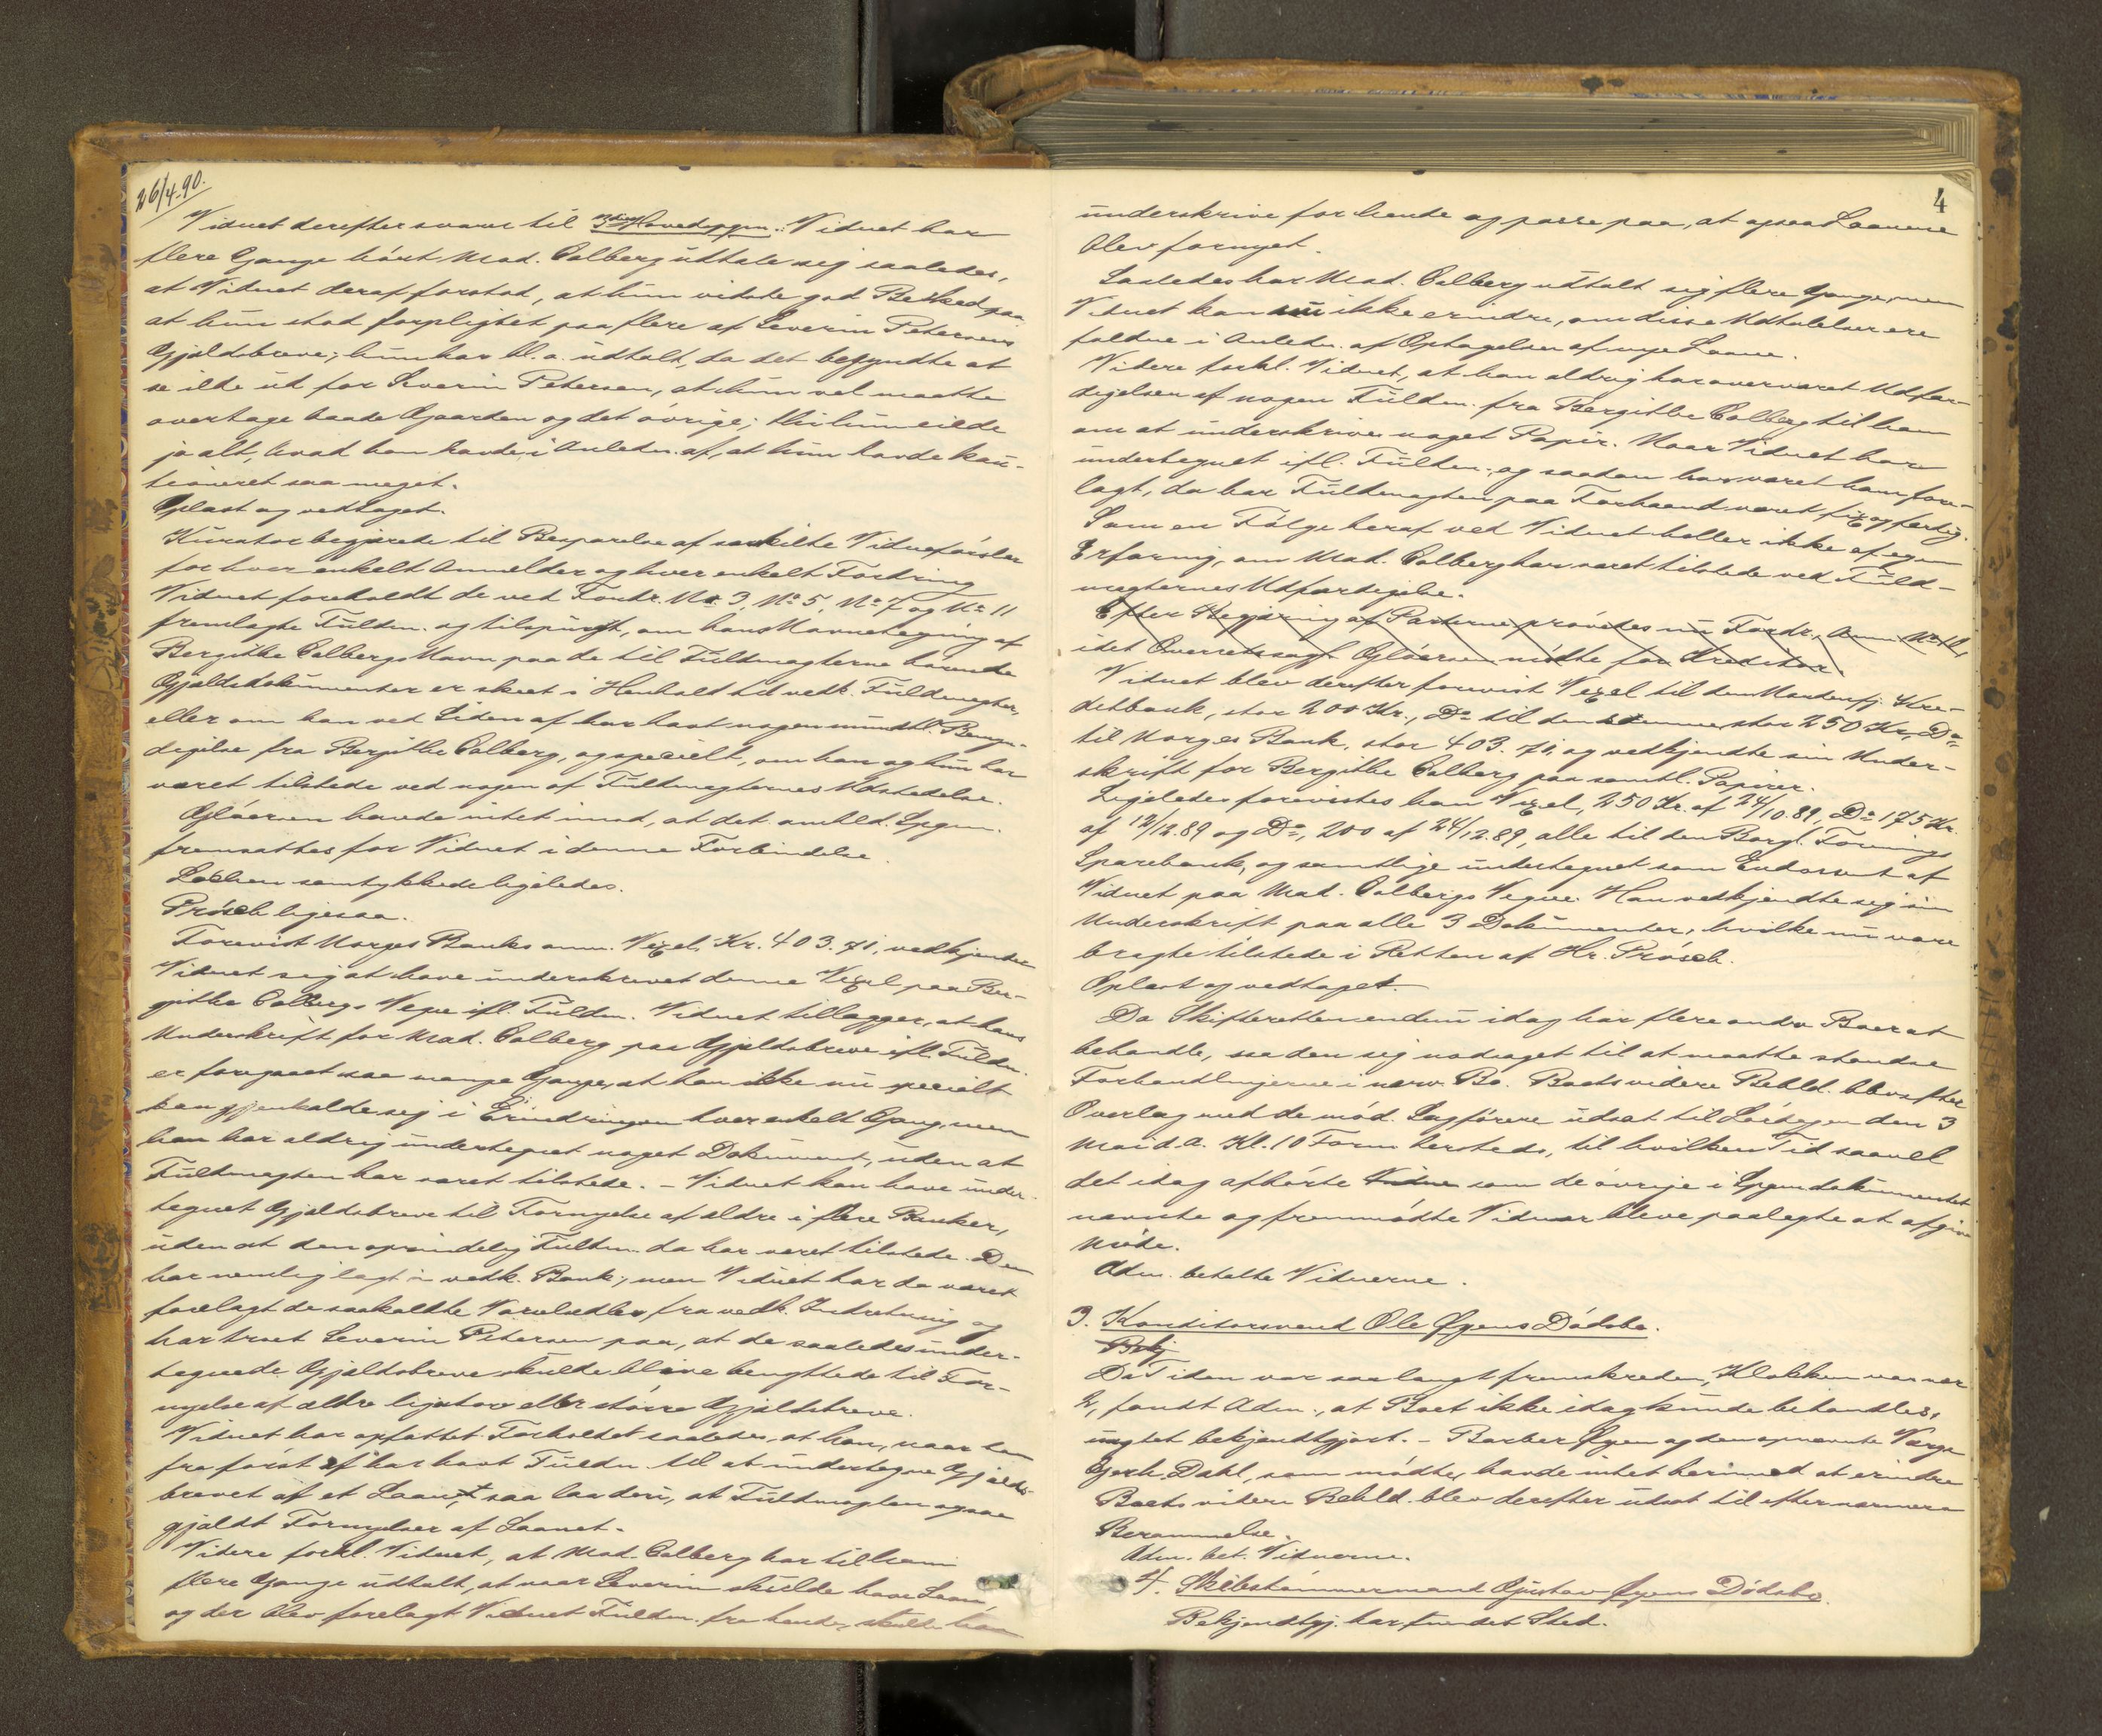 26/4.90.
Vidnet derefter svarer til 3die Hovedspgm.: Vidnet har
flere Gange hórt Mad. Colberg udtale sig saaledes,
at Vidnet deraf forstod, at hun vidste god Besked paa,
at hun stod forpligtet paa flere af Severin Petersens
Gjældsbreve; hun har bl. a. udtalt, da det begyndte at
se ilde ud for Severin Petersen, at hun vel maatte
overtage baade Gaarden og det óvrige; thi hun eiede
jo alt, hvad han havde i Anledn. af, at hun havde kau-
tioneret saa meget.
Oplæst og vedtaget.
Kurator begjærede til Besparelse af særskilte Vidneførsler
for hver enkelt Anmelder og hver enkelt Fordring
Vidnet foreholdt de ved Fordr. No. 3, No 5, No 7 og No 11
fremlagte Fuldm. og tilspurgt, om hans Navnetegning af
Bergithe Colbergs Navn paa de til Fuldmagterne hørende
Gjældsdokumenter er skeet i Henhold til vedk. Fuldmagter,
eller om han ved Siden af har havt nogen mundtl. Bemyn-
digelse fra Bergithe Colberg, og specielt, om han og hun har
været tilstede ved nogen af Fuldmagternes Udstedelse.
Glóersen havde intet imod, at det omhld. Spgm.
fremsattes for Vidnet i denne Forbindelse.
Lochen samtykkede ligeledes.
Prósch ligesaa.
Forevist Norges Banks anm. Vexel, Kr. 403.71, vedkjender
Vidnet sig at have underskrevet denne Vexel paa Ber-
githe Colbergs Vegne ifl. Fuldm. Vidnet tillægger, at hans
Underskrift for Mad. Colberg paa Gjældsbreve ifl. Fuldm.
er foregaaet saa mange Gange, at han ikke nu specielt
kan gjenkalde sig i Erindringen hver enkelt Gang, men
han har aldrig undertegnet noget Dokument, uden at
Fuldmagten har været tilstede. – Vidnet kan have under-
tegnet Gjældsbreve til Fornyelse af ældre i flere Banker,
uden at den oprindelig Fuldm. da har været tilstede. Den
har nemlig lagt i vedk. Bank; men Vidnet har da været
forelagt de saakaldte Varselsedler fra vedk. Indretning og
har troet Severin Petersen paa, at de saaledes under-
tegnede Gjældsbreve skulde blive benyttede til For-
nyelse af ældre ligestore eller stórre Gjældsbreve.
Vidnet har opfattet Forholdet saaledes, at han, naar han
fra fórst af har havt Fuldm. til at undertegne Gjælds-
brevet af et Laan, saa laa deri, at Fuldmagten ogsaa
gjaldt Fornyelser af Laanet.
Videre forkl. Vidnet, at Mad. Colberg har til ham
flere Gange udtalt, at naar Severin skulde have Laan,
og der blev forelagt Vidnet Fuldm. fra hende, skulde han
4
underskrive for hende og passe paa, at ogsaa Laanene
blev fornyet.
Saaledes har Mad. Colberg udtalt sig flere Gange, men
Vidnet kan nu ikke erindre, om disse Udtalelser ere
faldne i Anledn. af Optagelser af nye Laane.
Videre forkl. Vidnet, at han aldrig har overværet Udfær-
digelsen af nogen Fuldm. fra Bergithe Colberg til ham
om at underskrive noget Papir. Naar Vidnet har
undertegnet ifl. Fuldm. og saadan har været ham fore-
lagt, da har Fuldmagten paa Forhaand været fix og færdig.
Som en Fólge heraf ved Vidnet heller ikke af egen
Erfaring, om Mad. Colberg har været tilstede ved Fuld-
magternes Udfærdigelse.
Efter Begjæring af Parterne próvedes nu Fordr. Anm. No 11,
idet Overretssagf. Glóersen módte for Kreditor.
Vidnet blev derefter forevist Vexel til den Nordenfj. Kre-
ditbank, stor 200 Kr., Do til den samme stor 250 Kr., Do
til Norges Bank, stor 403.71, og vedkjendte sin Under-
skrift for Bergithe Colberg paa samtl. Papirer.
Ligeledes forevistes han Vexel, 250 Kr. af 24/10.89, Do 175 Kr.
af 12/12.89 og Do, 200 af 24/12.89, alle til den Borgl. Forenings
Sparebank, og samtlige undertegnet som Endossent af
Vidnet paa Mad. Colbergs Vegne. Han vedkjendte sig sin
Underskrift paa alle 3 Dokumenter, hvilke nu vare
bragte tilstede i Retten af Hr. Prósch.
Oplæst og vedtaget.
Da Skifteretten endnu idag har flere andre Boer at
behandle, saa den sig nødsaget til at maatte standse
Forhandlingerne i nærv. Bo. Boets videre Behld. blev efter
Overlæg med de mód. Sagfórere udsat til Lóverdagen den 3
Mai d. A. Kl. 10 Form. hersteds, til hvilken Tid saavel
det idag afhórte Vidne som de óvrige i Spgmdokumentet
nævnte og fremmódte Vidner bleve paalagte at afgive
Móde.
Adm. betalte Vidnerne.
3. Konditorsvend Ole Øyens Dódsbo.
Bekj
Da Tiden var saa langt fremskreden, Klokken var nær
2, fandt Adm., at Boet ikke idag kunde behandles,
uagtet bekjendtgjort. – Barber Øyen og den opnævnte Værge
Gerh. Dahl, som módte, havde intet herimod at erindre
Boets videre Behld. blev derefter udsat til efter nærmere
Berammelse.
Adm. bet. Vidnerne.
4. Skibstómmermand Gustav Øyens Dódsbo.
Bekjendtgj. har fundet Sted.